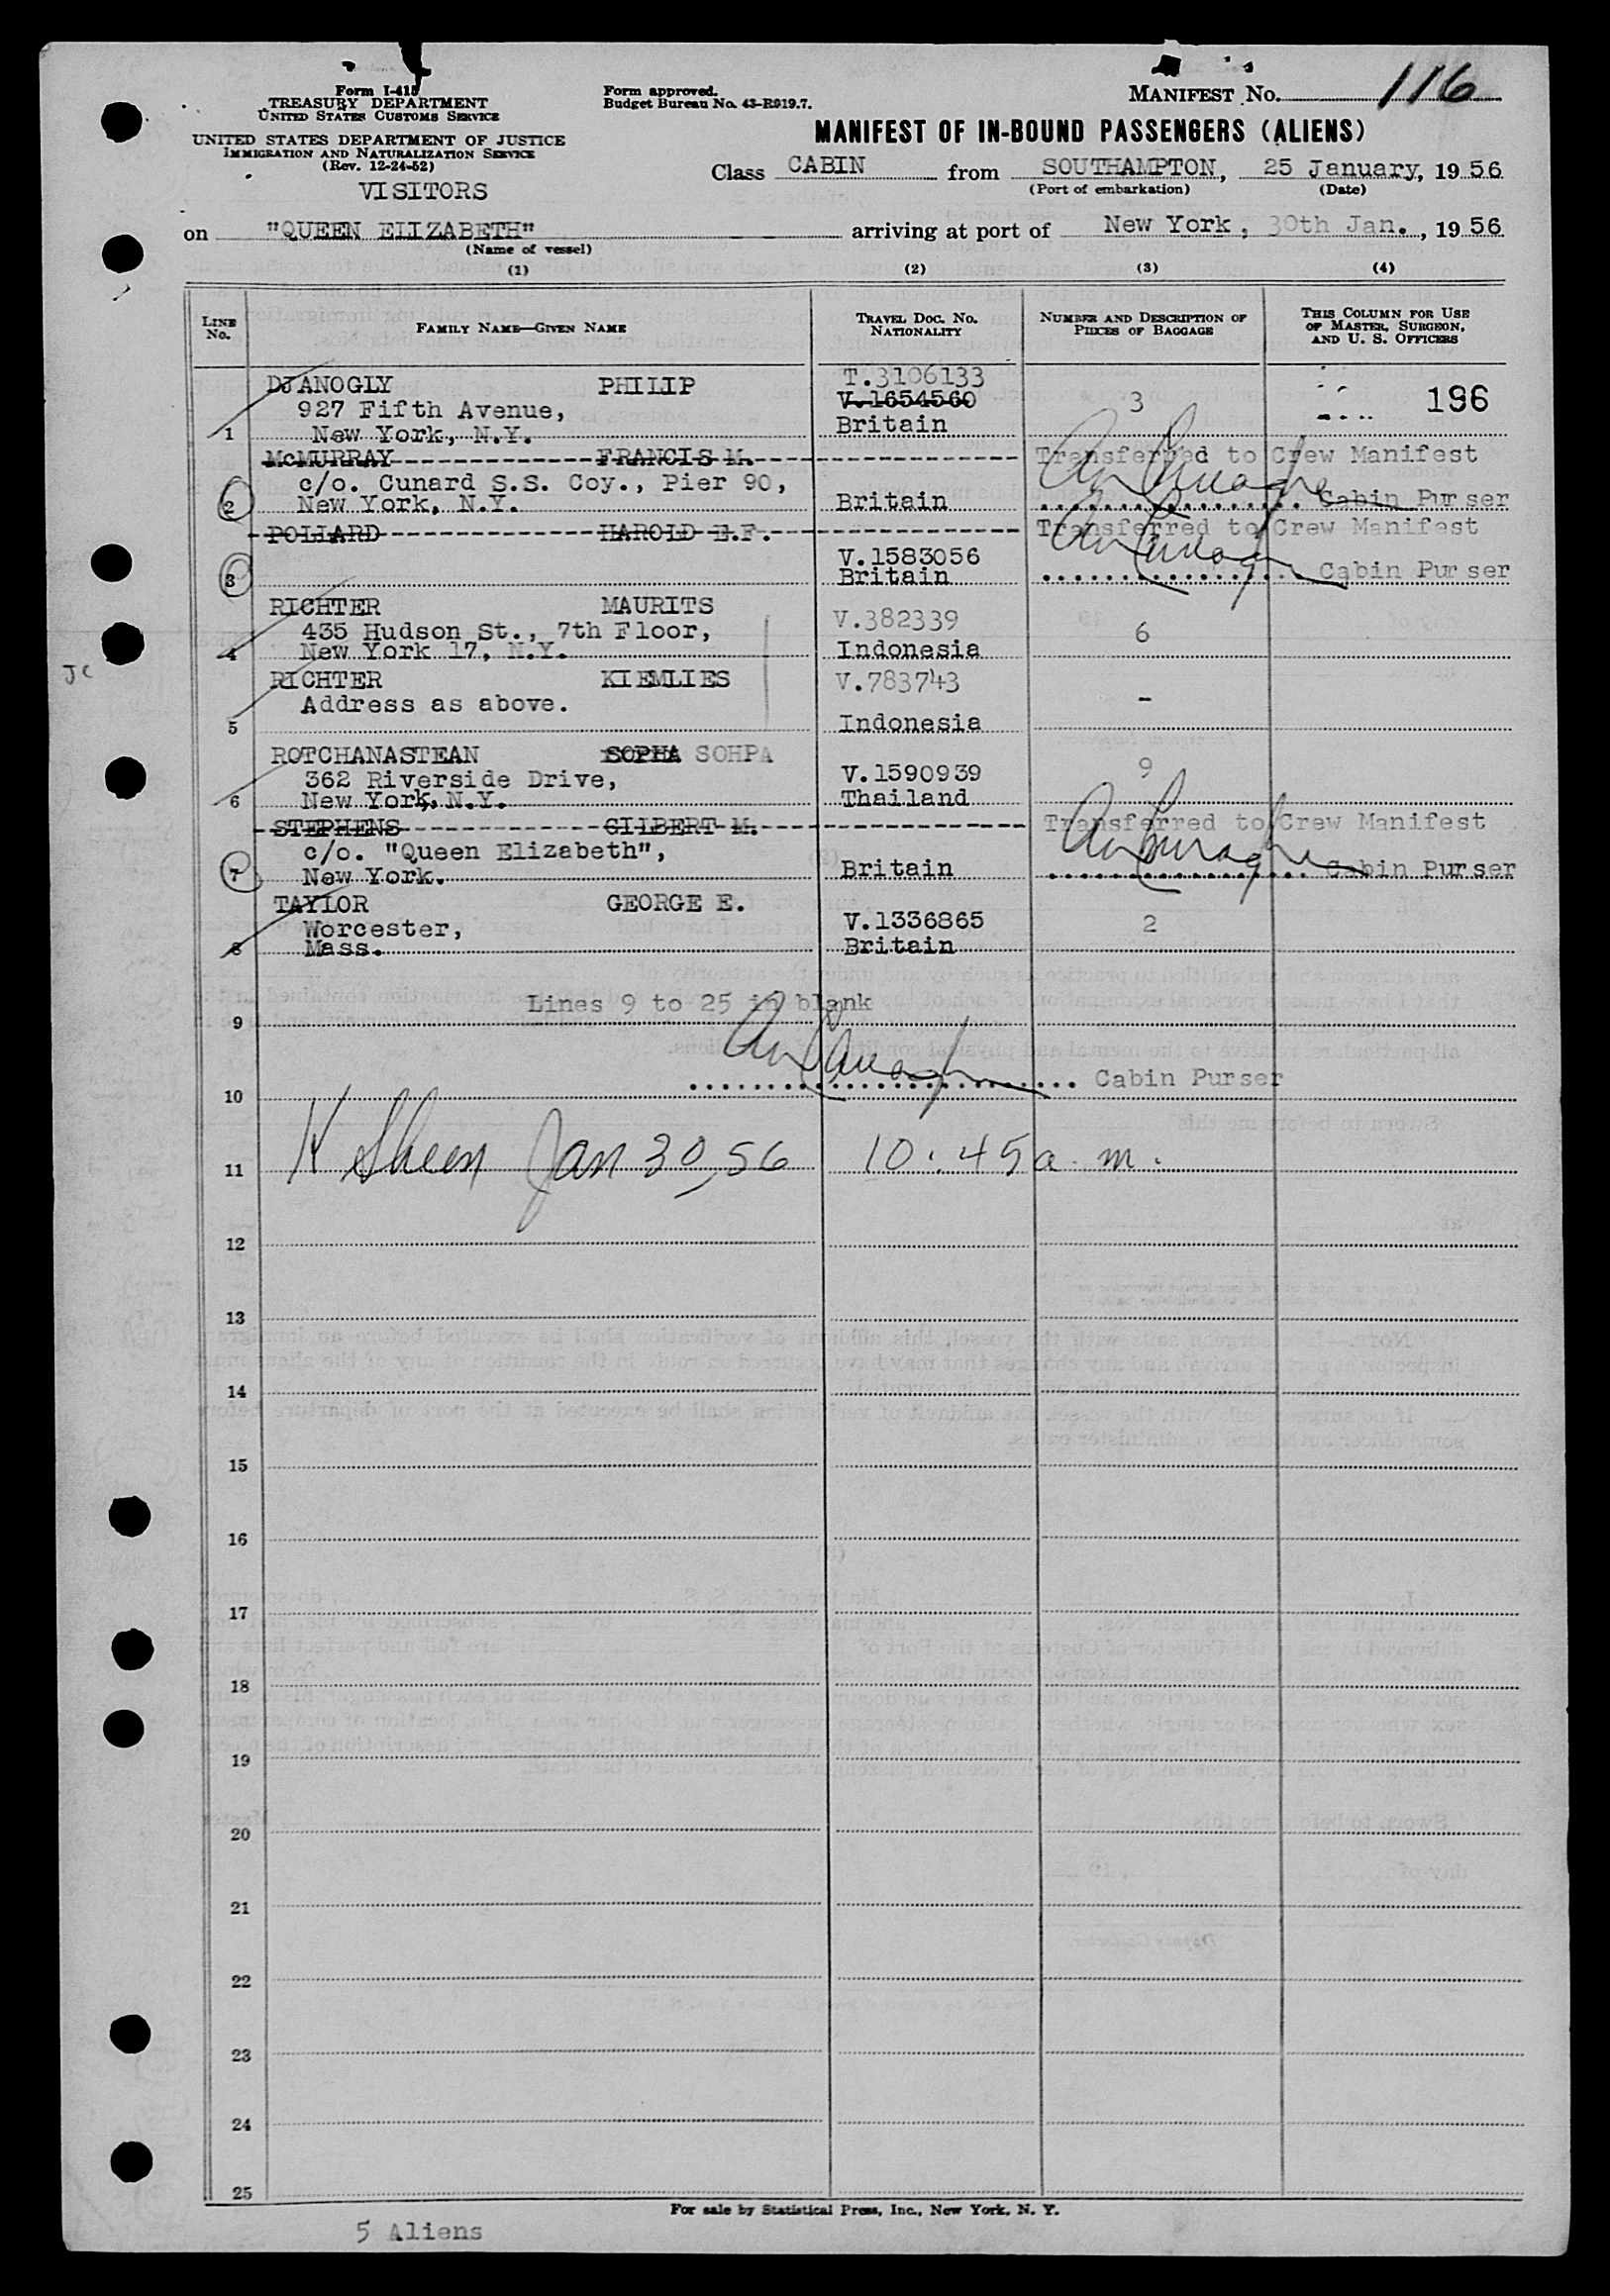 Form I-415
TREASURY DEPARTMENT
UNITED STATES CUSTOMS SERVICE
UNITED STATES DEPARTMENT OF JUSTICE
IMMIGRATION AND NATURALIZATION SERVICE
(Rev. 12-24-52)
VISITORS
Form approved.
Budget Bureau No. 43-R019.7.
MANIFEST NO. 116
MANIFEST OF IN-BOUND PASSENGERS (ALIENS)
Class CABIN from SOUTHAMPTON, 25 January, 1956
(Port of embarkation) (Date)
on "QUEEN ELIZABETH" arriving at port of New York, 30th Jan., 1956
(Name of vessel)
(1) (2) (3) (4)
LINE NO. FAMILY NAME—GIVEN NAME TRAVEL DOC. NO. NATIONALITY NUMBER AND DESCRIPTION OF PIECES OF BAGGAGE THIS COLUMN FOR USE OF MASTER, SURGEON, AND U. S. OFFICERS
DJANOGLY PHILIP T.3106133
927 Fifth Avenue, V.1654560 3 196
1 New York, N.Y. Britain
McMURRAY FRANCIS M. Transferred to Crew Manifest
c/o. Cunard S.S. Coy., Pier 90,
2 New York, N.Y. Britain Cabin Purser
POLLARD HAROLD E.F. Transferred to Crew Manifest
V.1583056
3 Britain Cabin Purser
RICHTER MAURITS V.382339
435 Hudson St., 7th Floor, 6
4 New York 17, N.Y. Indonesia
RICHTER KIEMLIES V.783743
Address as above. -
5 Indonesia
ROTCHANASTEAN SOPHA SOHPA
362 Riverside Drive, V.1590939 9
6 New York, N.Y. Thailand
STEPHENS GILBERT M. Transferred to Crew Manifest
c/o. "Queen Elizabeth",
7 New York. Britain Cabin Purser
TAYLOR GEORGE E.
Worcester, V.1336865 2
8 Mass. Britain
Lines 9 to 25 in blank
9
Cabin Purser
10
11 K Sheen Jan 30, 56 10.45 a.m.
12
13
14
15
16
17
18
19
20
21
22
23
24
25
JC
For sale by Statistical Press, Inc., New York, N. Y.
5 Aliens